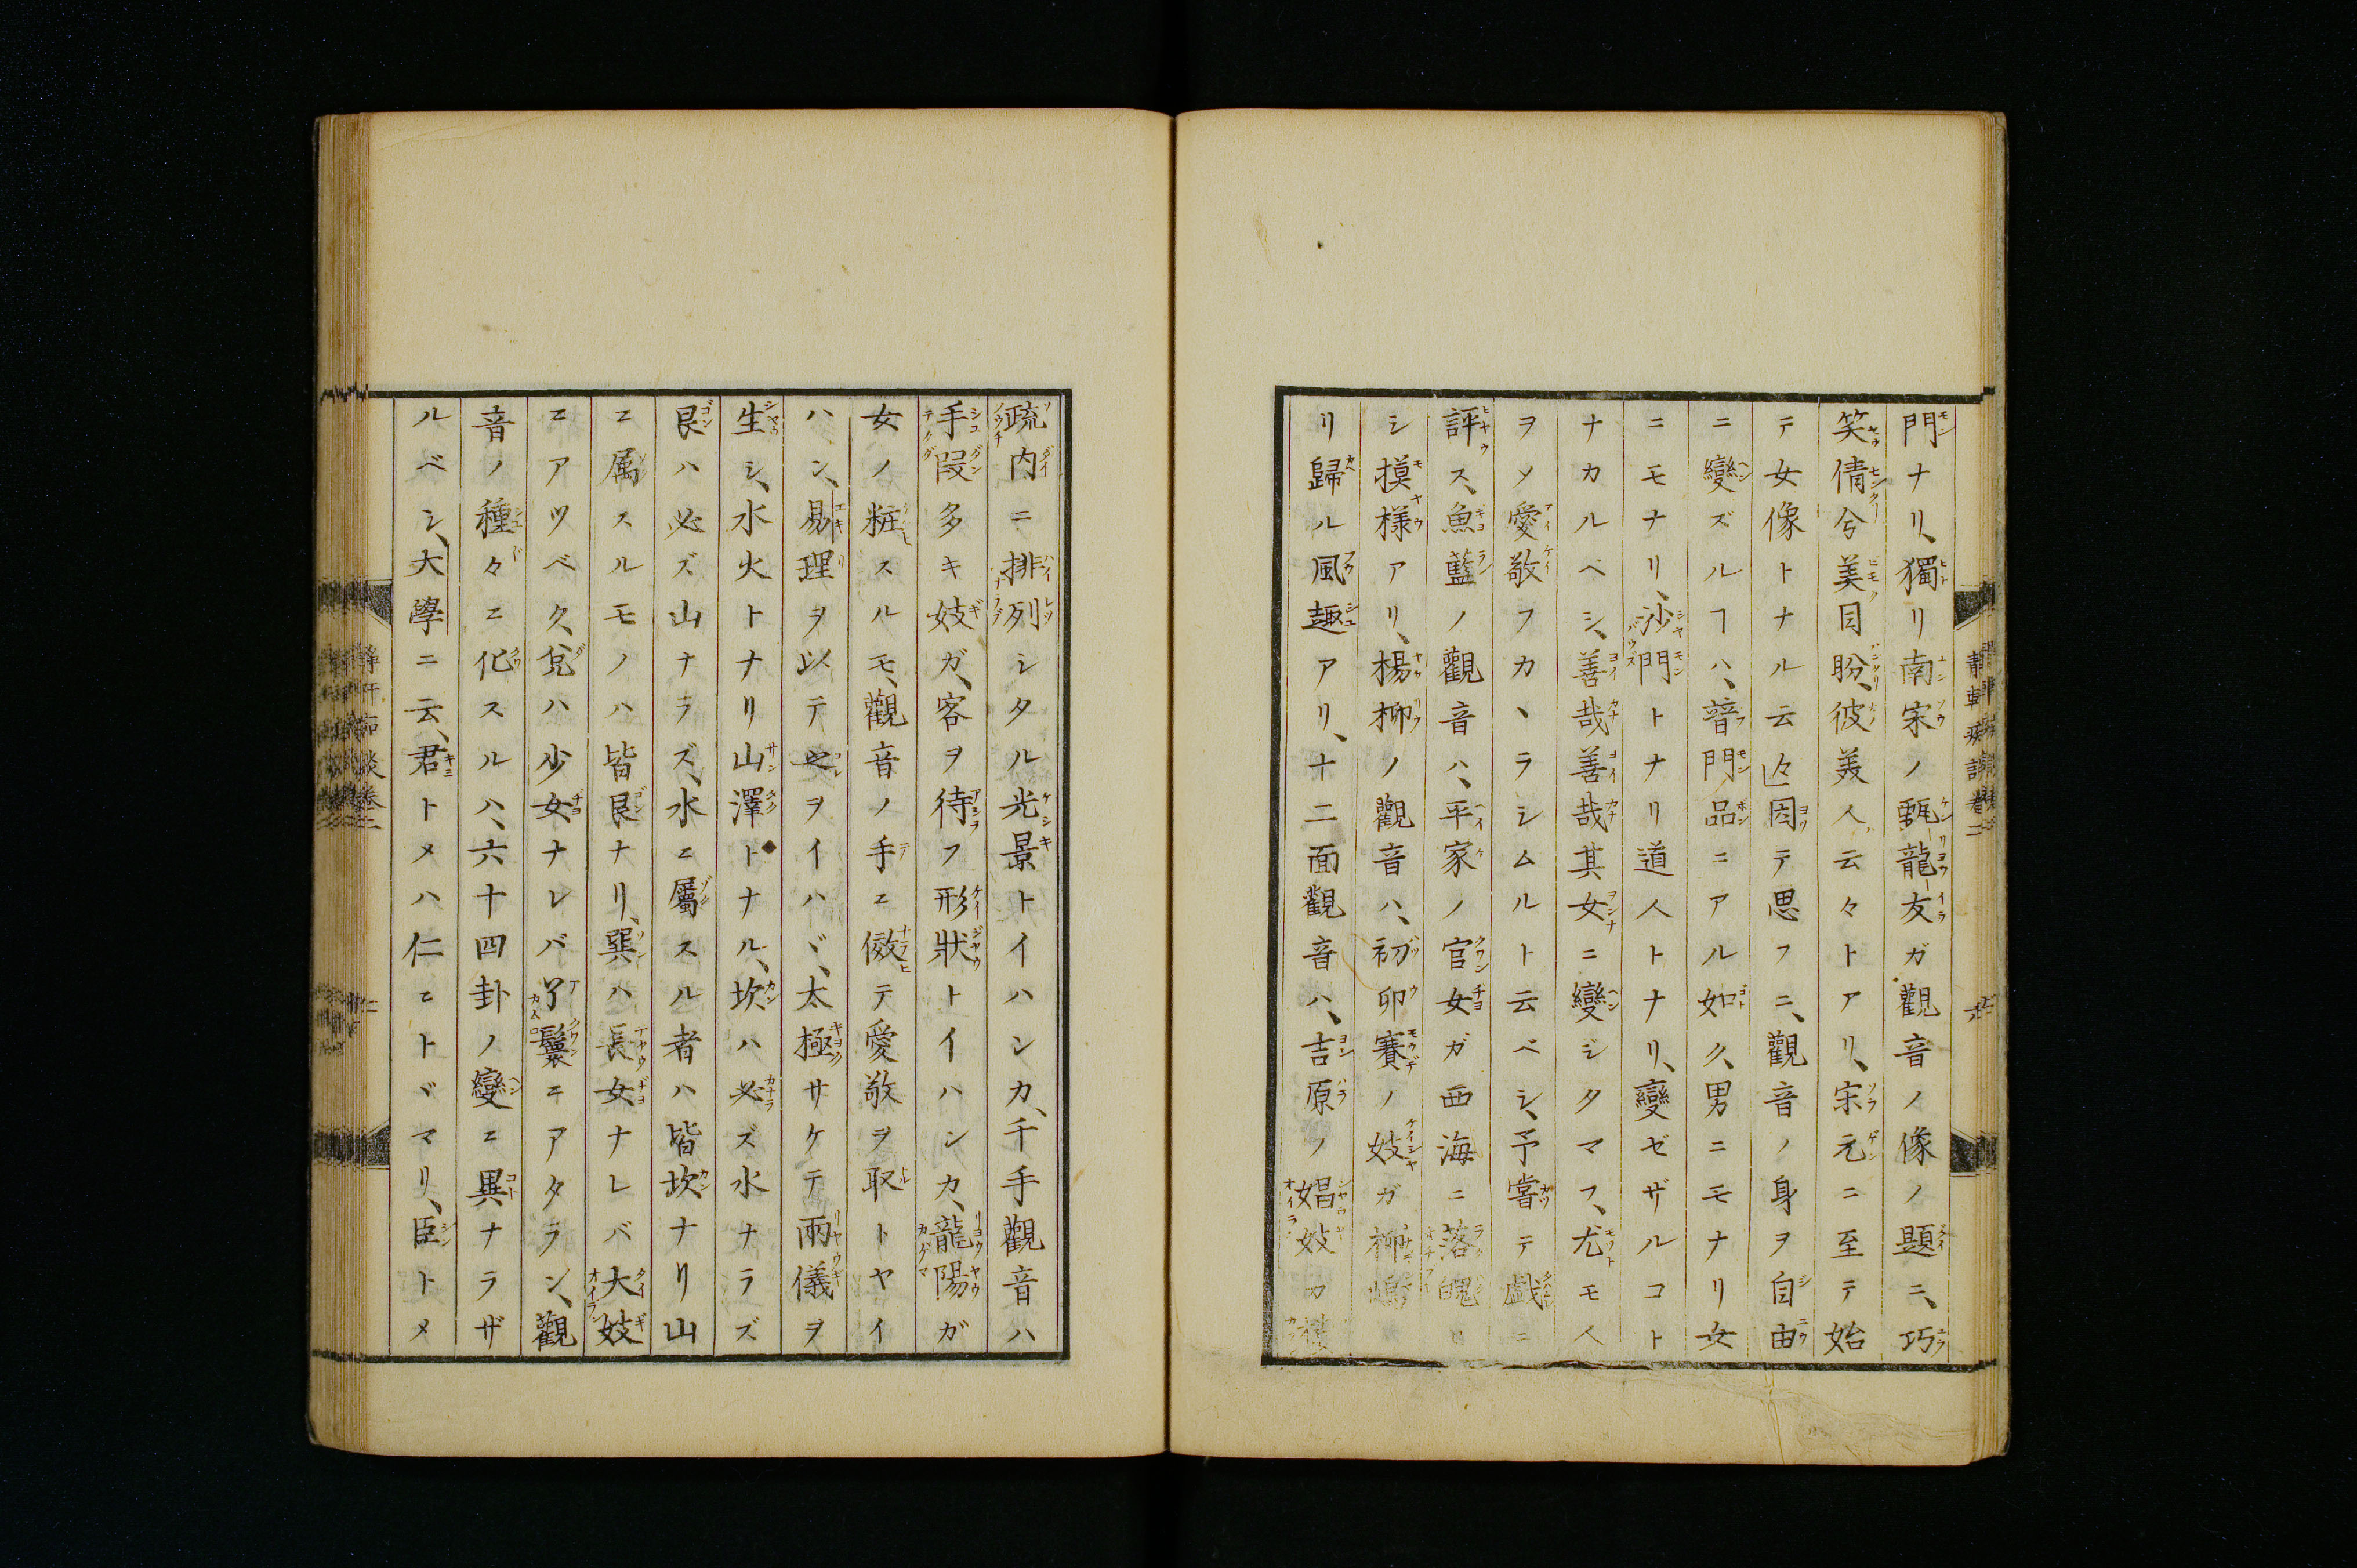 門ナリ、獨リ南宋ノ甄龍友ガ觀音ノ像ノ題ニ、巧
笑倩兮美目盼、彼美人云々トアリ、宋元ニ至テ始
テ女像トナル云々因テ思フニ、觀音ノ身ヲ自由
ニ變ズルヿハ、普門品ニアル如ク、男ニモナリ女
ニモナリ、沙門トナリ道人トナリ、變ゼザルコト
ナカルベシ、善哉善哉其女ニ變ジタマフ、尤モ人
ヲメ愛敬フカヽラシムルト云ベシ、予嘗テ戯ニ
評ス、魚藍ノ觀音ハ、平家ノ官女ガ西海ニ落魄
シ摸様アリ、楊柳ノ觀音ハ、初卯賽ノ妓ガ柳嶋
リ歸ル風趣アリ、十二面觀音ハ、吉原ノ娼妓カ
疏内ニ排列シタル光景トイハンカ、千手觀音ハ
手段多キ妓ガ、客ヲ待フ形狀トイハンカ、龍陽ガ
女ノ粧スルモ、觀音ノ手ニ傚テ愛敬ヲ取トヤイ
ハン、易理ヲ以テ之ヲイハヾ、太極サケテ兩儀ヲ
生シ、水火トナリ山澤トナル、坎ハ必ズ水ナラズ
艮ハ必ズ山ナラズ、水ニ屬スル者ハ皆坎ナリ山
ニ属スルモノハ皆艮ナリ、巽ハ長女ナレバ大妓
ニアツベク、兌ハ少女ナレバ丫鬟ニアタラン、觀
音ノ種々ニ化スルハ、六十四卦ノ變ニ異ナラザ
ルベシ、大學ニ云、君トメハ仁ニトヾマリ、臣トメ